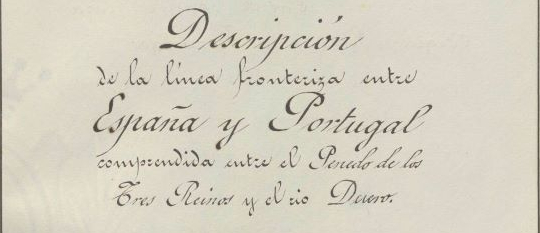 Descripción
de la línea fronteriza entre
España y Portugal
comprendida entre el Penedo de los
Tres Reinos y el rio Duero.